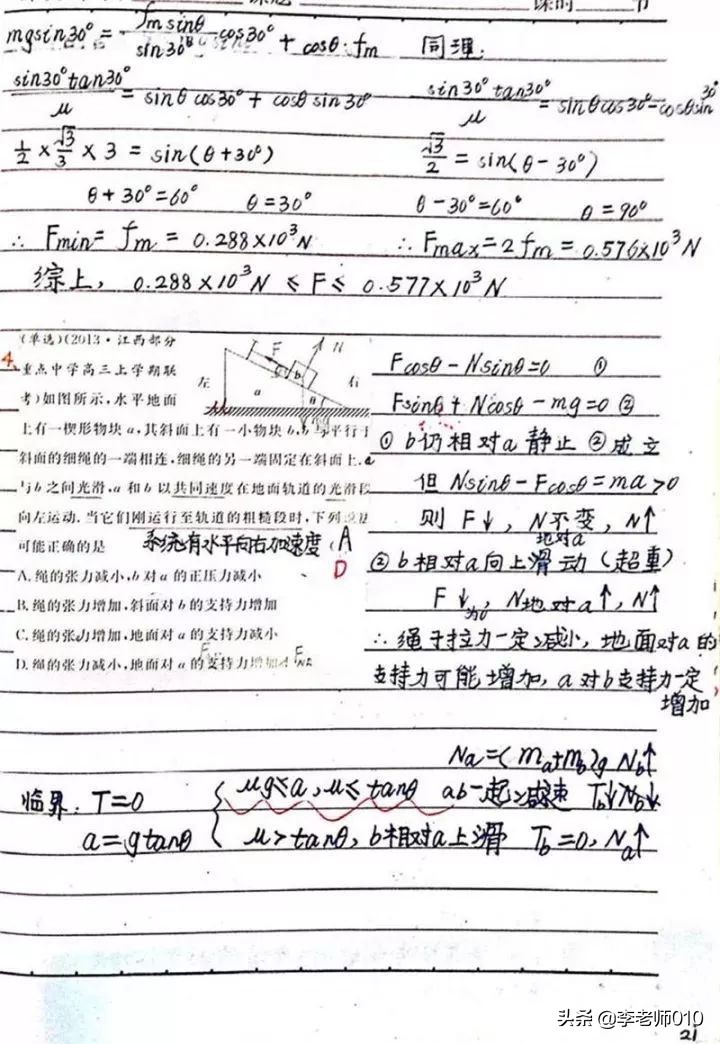 课时 节
mgsin30° = fm sinθ / sin30° cos30° + cosθ·fm 同理:
sin30°tan30° / μ = sinθcos30° + cosθsin30° sin30°tan30° / μ = sinθcos30° - cosθsin30°
1/2 × √3/3 × 3 = sin(θ+30°) √3/2 = sin(θ-30°)
θ+30°=60° θ=30° θ-30°=60° θ=90°
∴ Fmin = fm = 0.288×10³N ∴ Fmax = 2fm = 0.576×10³N
综上, 0.288×10³N ≤ F ≤ 0.577×10³N
4.
(单选)(2013·江西部分
重点中学高三上学期联
考)如图所示,水平地面
上有一楔形物块a,其斜面上有一小物块b,b与平行于
斜面的细绳的一端相连,细绳的另一端固定在斜面上.a
与b之间光滑,a和b以共同速度在地面轨道的光滑段
向左运动.当它们刚运行至轨道的粗糙段时,下列说法
可能正确的是 系统有水平向右加速度 (A
D
A.绳的张力减小,b对a的正压力减小
B.绳的张力增加,斜面对b的支持力增加
C.绳的张力增加,地面对a的支持力减小
D.绳的张力减小,地面对a的支持力增加
左 F N b a θ 右
Fcosθ - Nsinθ = 0 ①
Fsinθ + Ncosθ - mg = 0 ②
① b仍相对a静止 ②成立
但 Nsinθ - Fcosθ = ma > 0
则 F↓, N地对a不变, N↑
② b相对a向上滑动(超重)
F↓为0, N地对a↑, N↑
∴ 绳子拉力一定减小, 地面对a的
支持力可能增加, a对b支持力一定
增加
Na=(ma+mb)g Nb↑
临界: T=0 { μg≤a, μ≤tanθ ab一起减速 Tb↓Nb↓
a=gtanθ μ>tanθ, b相对a上滑 Tb=0, Na↑
头条 @李老师010
21